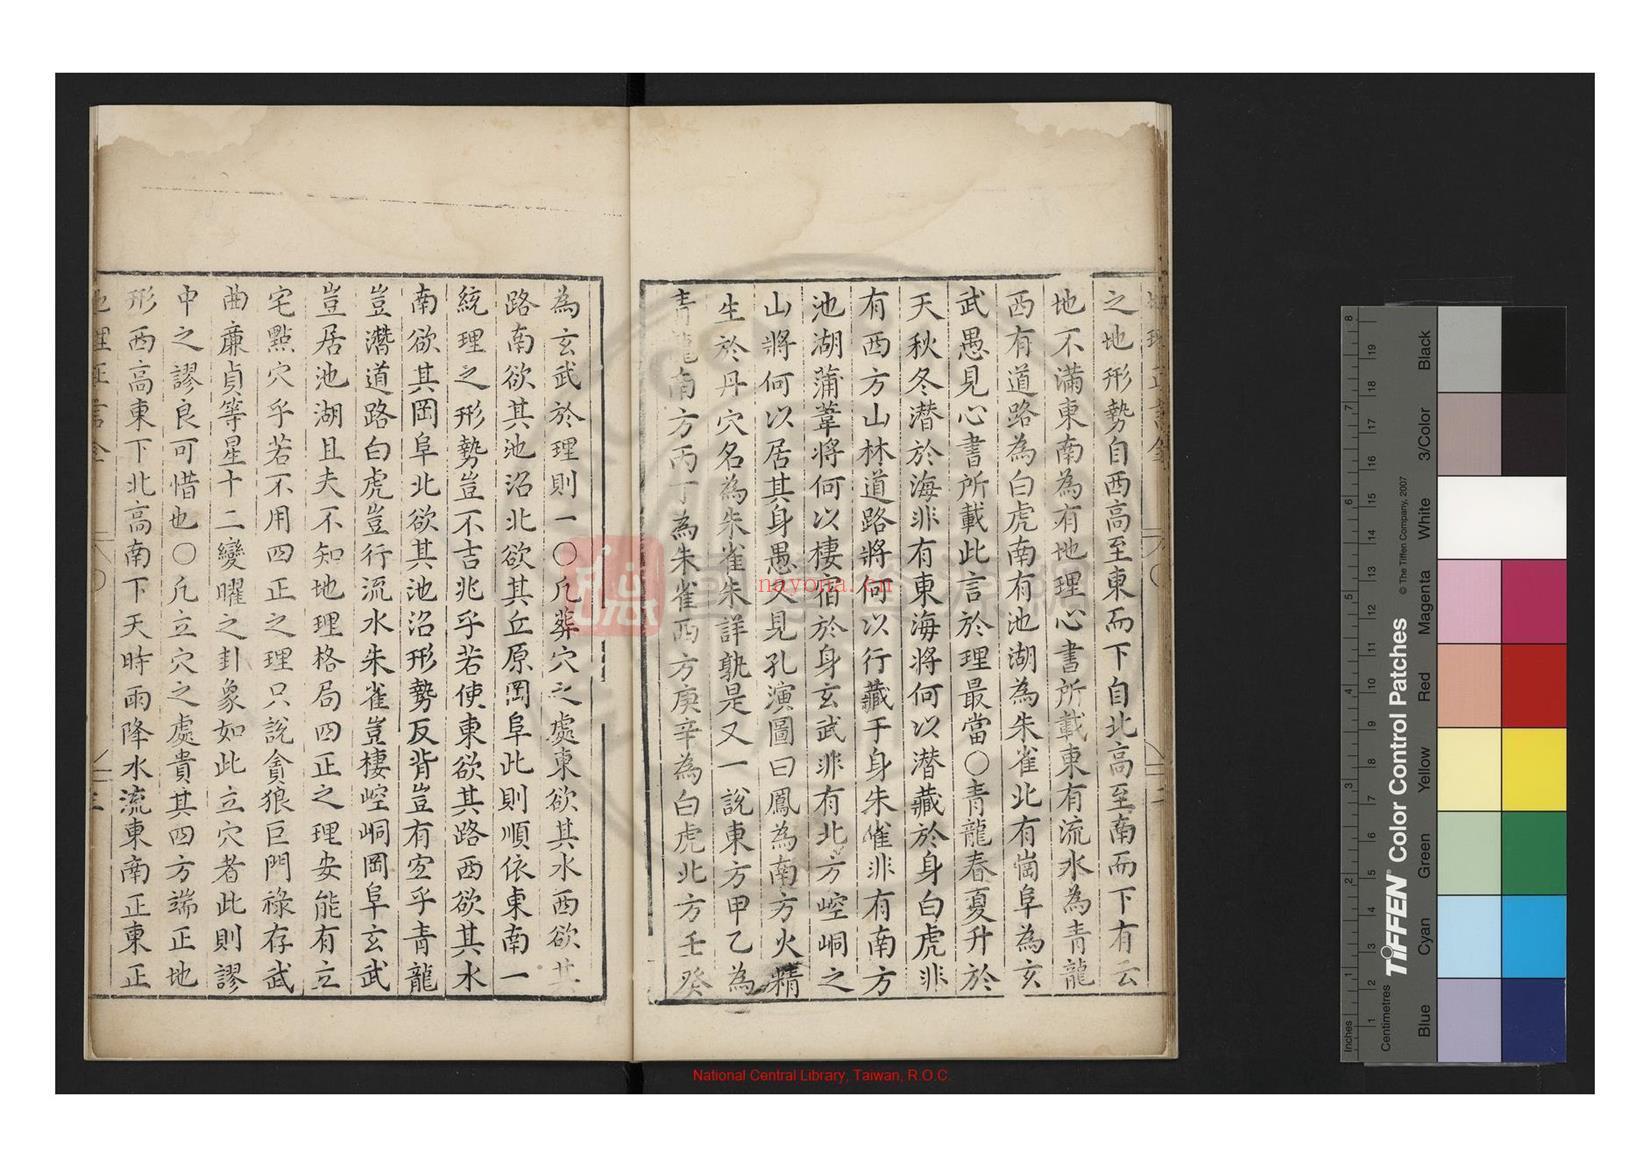 之地形勢自西高至東而下自北高至南而下有云
地不滿東南為有地理心書所載東有流水為青龍
西有道路為白虎南有池湖為朱雀北有崗阜為玄
武愚見心書所載此言於理最當○青龍春夏升於
天秋冬潛於海非有東海將何以潛藏於身白虎非
有西方山林道路將何以行藏于身朱雀非有南方
池湖蒲葦將何以棲宿於身玄武非有北方崆峒之
山將何以居其身愚又見孔演圖曰鳳為南方火精
生於丹穴名為朱雀朱詳孰是又一說東方甲乙為
青龍南方丙丁為朱雀西方庚辛為白虎北方壬癸
為玄武於理則一○凡葬穴之處東欲其水西欲其
路南欲其池沼北欲其丘原岡阜此則順依東南一
統理之形勢豈不吉兆乎若使東欲其路西欲其水
南欲其岡阜北欲其池沼形勢反背豈有宓乎青龍
豈潛道路白虎豈行流水朱雀豈棲崆峒岡阜玄武
豈居池湖且夫不知地理格局四正之理安能有立
宅點穴乎若不用四正之理只說貪狼巨門祿存武
曲廉貞等星十二變曜之卦象如此立穴者此則謬
中之謬良可惜也○凡立穴之處貴其四方端正地
形西高東下北高南下天時雨降水流東南正東正
地理正言全
三
國學資源網
nayona.cn
National Central Library, Taiwan, R.O.C.
Inches
Centimetres
TIFFEN Color Control Patches
© The Tiffen Company, 2007
Blue
Cyan
Green
Yellow
Red
Magenta
White
3/Color
Black